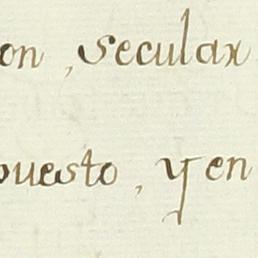 on, secular
puesto, y en